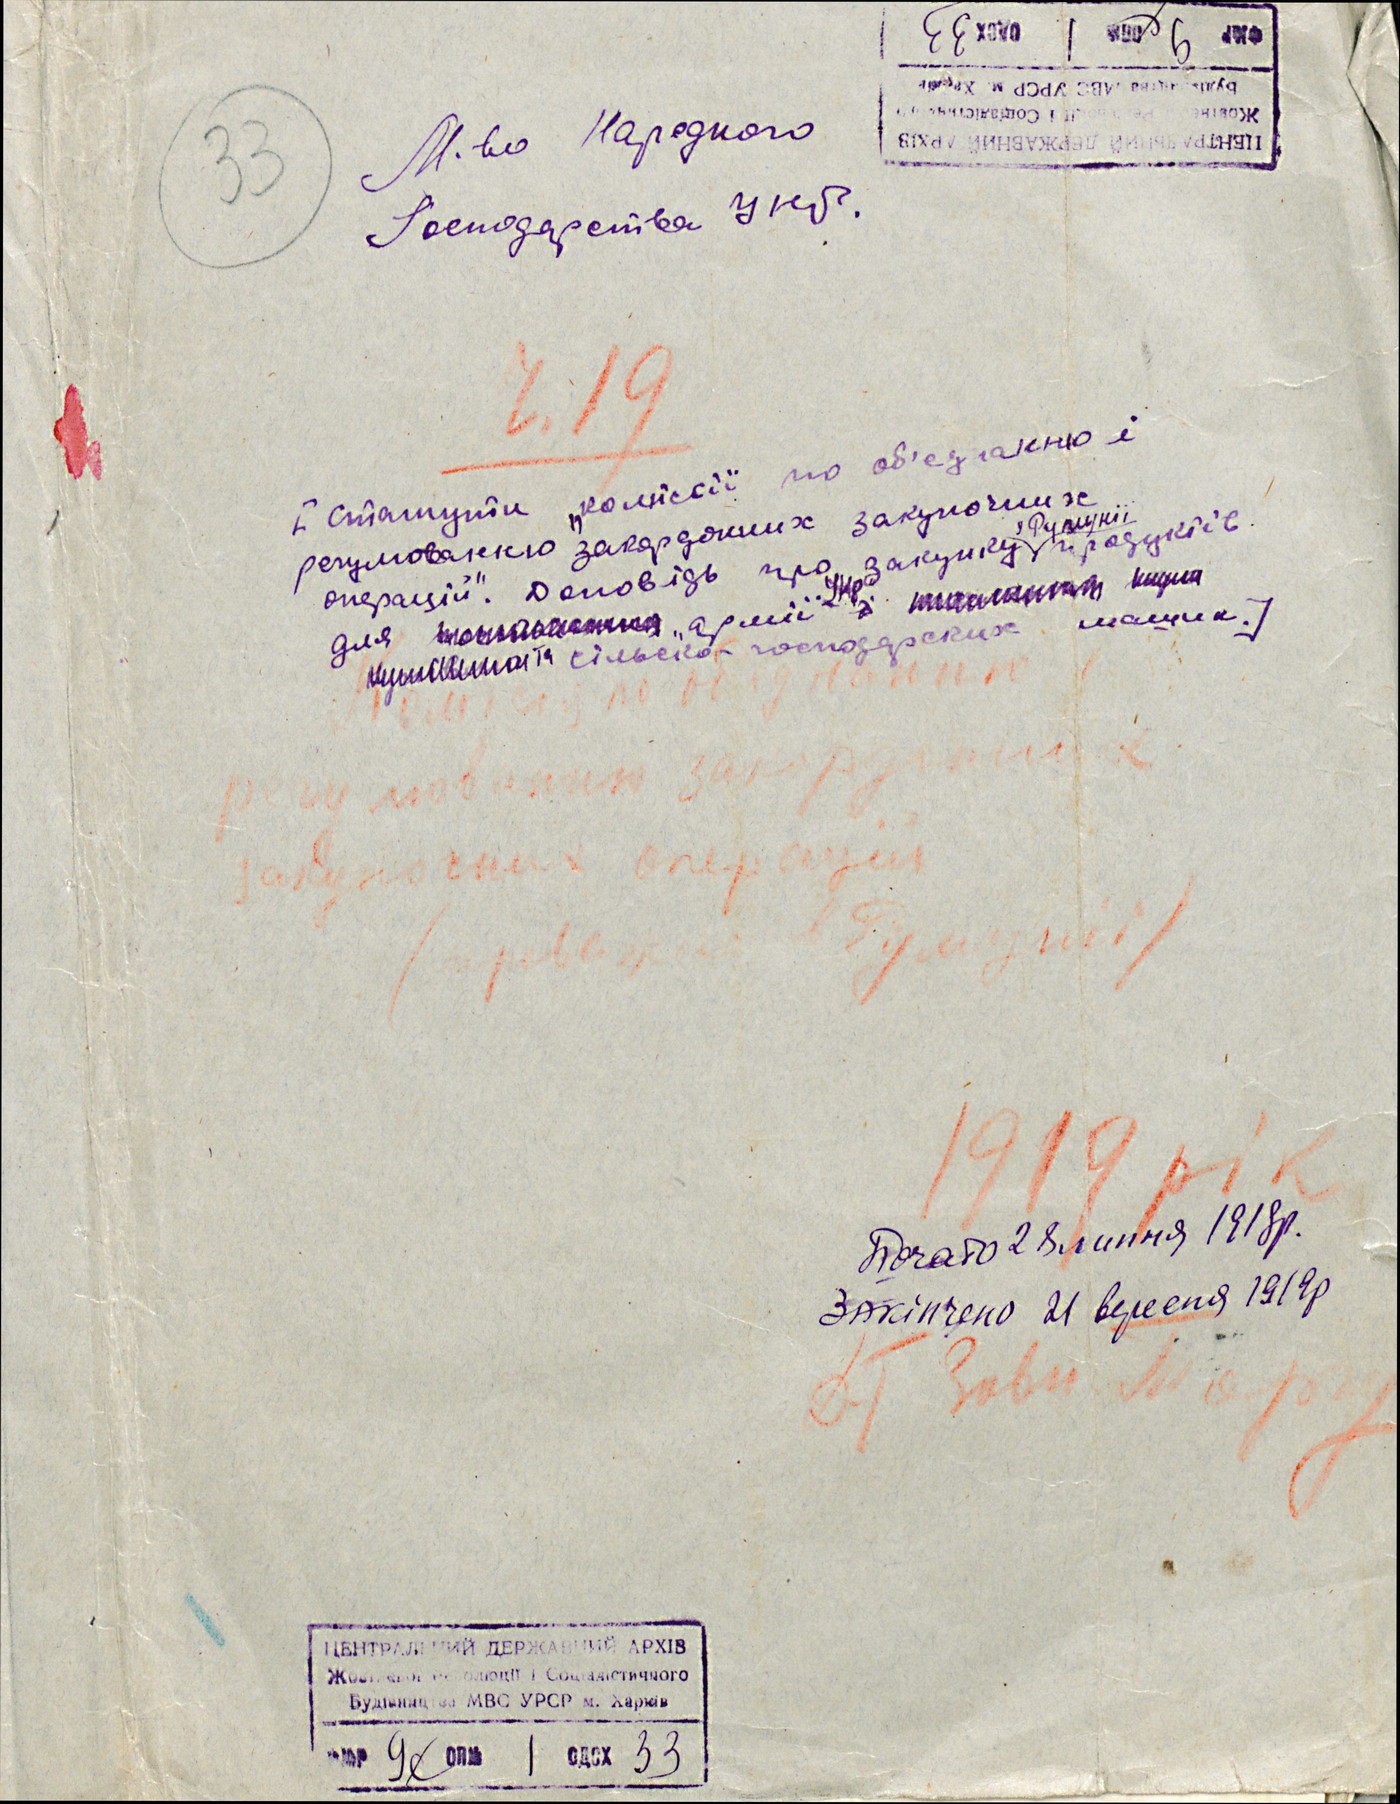 ФЖР 9 ОПЖ 1 ОДСХ 33
ЦЕНТРАЛЬНИЙ ДЕРЖАВНИЙ АРХІВ
Жовтневої Революції і Соціалістичного
Будівництва МВС УРСР м. Харків
33
М-во Народного
Господарства УНР.
Ч. 19
[Статути „комісії" по об'єднанню і
регулюванню закордонних закупочних
операцій". Доповідь про закупку в Румунії продуктів
для армії УНР і
та сільсько-господарських машин.]
Комісія по об'єднанню і
регулюванню закордонних
закупочних операцій
( Румунії)
1919 рік
Почато 28 липня 1918р.
Закінчено 21 вересня 1919р
ЦЕНТРАЛЬНИЙ ДЕРЖАВНИЙ АРХІВ
Жовтневої Революції і Соціалістичного
Будівництва МВС УРСР м. Харків
ФЖР 9 ОПЖ 1 ОДСХ 33